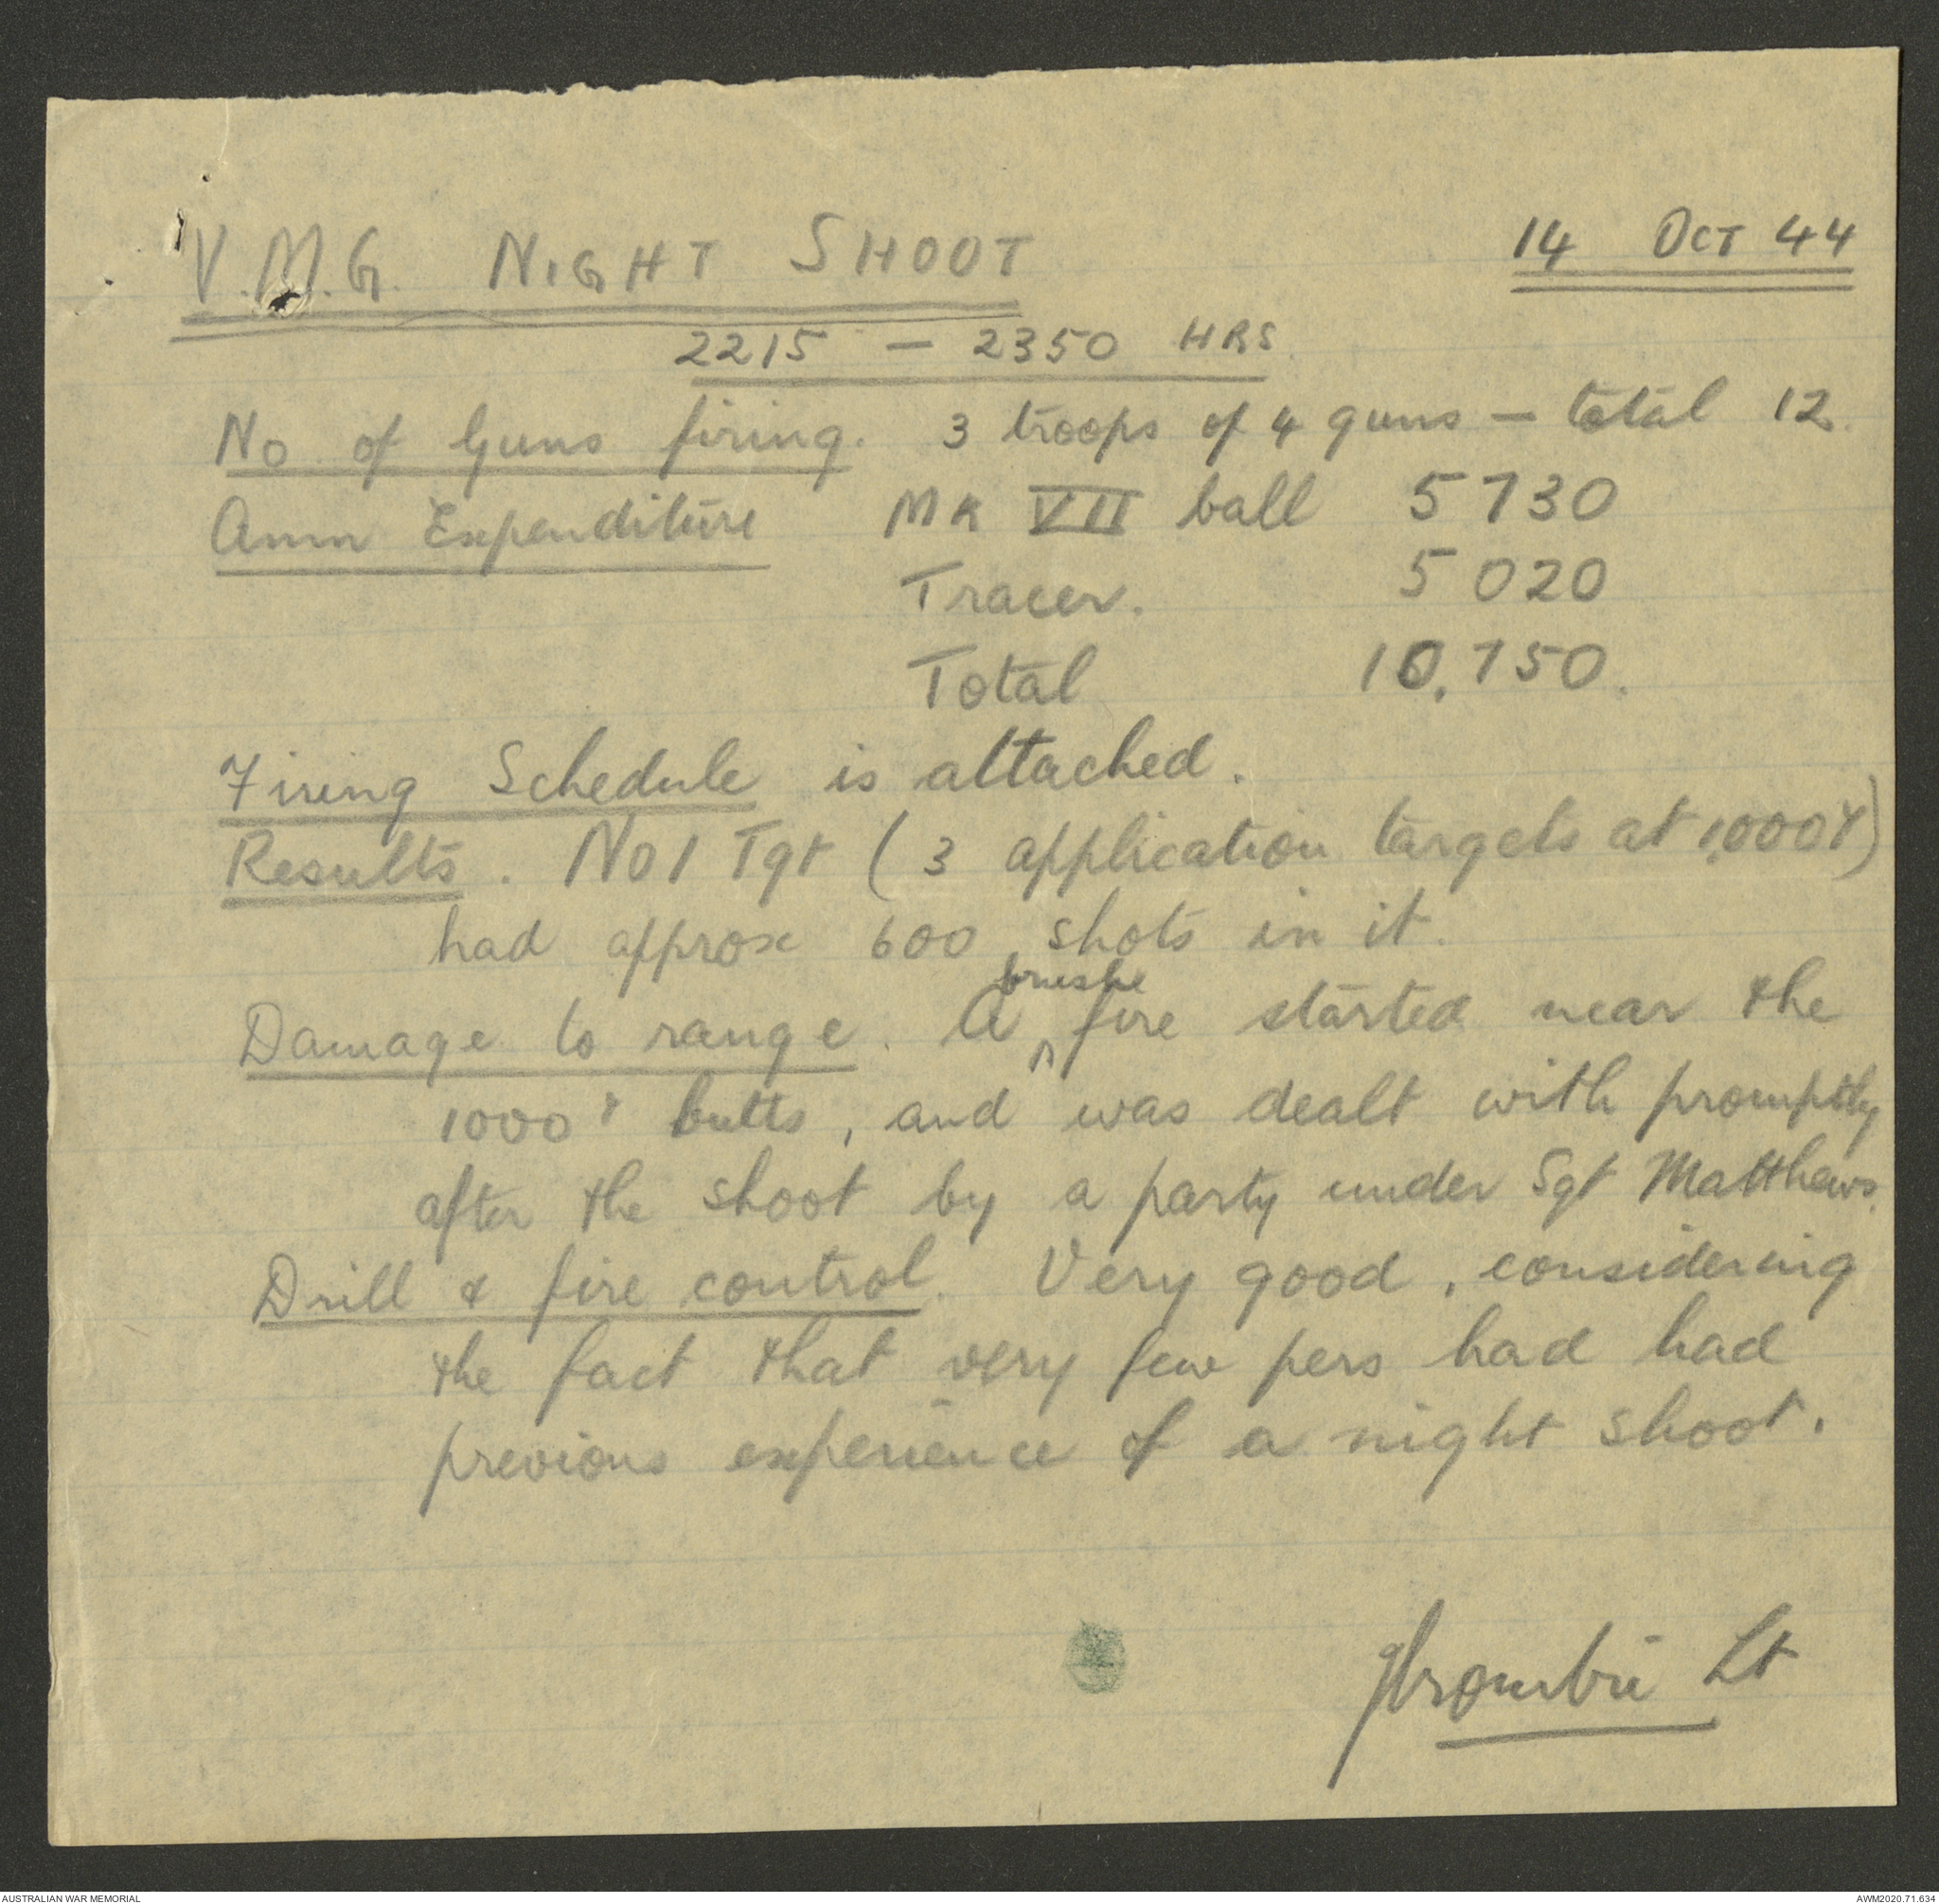 V.M.G. NIGHT SHOOT 14 OCT 44
2215 - 2350 HRS
No of Guns firing. 3 troops of 4 guns - total 12.
Amm Expenditure MK VII ball 5730
Tracer. 5020
Total 10,750.
Firing Schedule is attached.
Results. No 1 Tgt ( 3 application targets at 1,000 Y)
had approx 600 shots in it.
Damage to range. A fire started near the
1000 Y butts, and was dealt with promptly
after the shoot by a party under Sgt Matthews.
Drill & fire control. Very good, considering
the fact that very few pers had had
previous experience of a night shoot.
Lt
AUSTRALIAN WAR MEMORIAL AWM2020.71.634